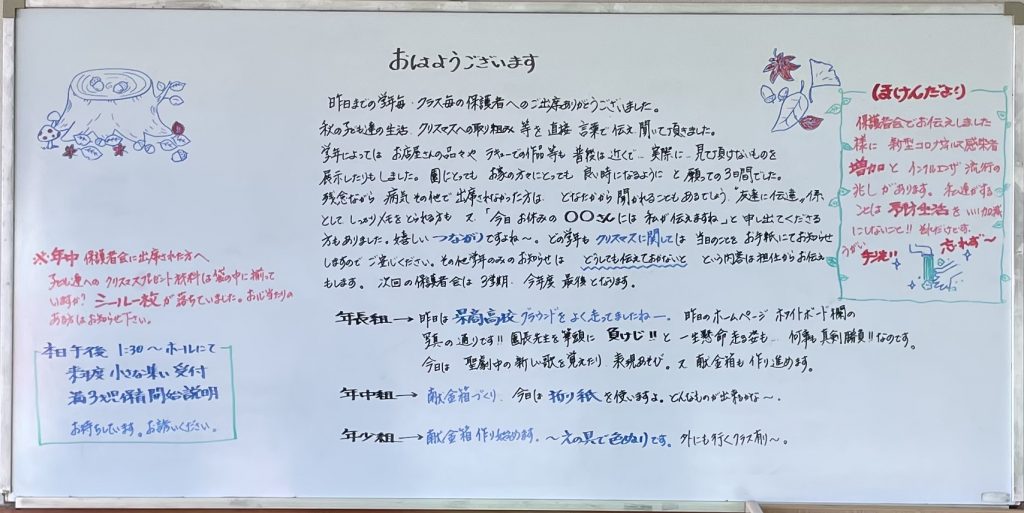 おはようございます
昨日までの学年毎・クラス毎の保護者へのご出席ありがとうございました。
秋の子ども達の生活、クリスマスへの取り組み 等を 直接 言葉で 伝え 聞いて 頂きました。
学年によっては お店屋さんの品々や 作品等も 普段は 近くで… 実際に… 見て頂けないものを
展示したりもしました。園にとっても お家の方々にとっても 良い時になるように と 願っての3日間でした。
残念ながら 病気 その他で ご出席されなかった方は どなたかから 聞かれることもあるでしょう。"友達に伝達。"係
として しっかりメモをとられる方も 又 「今日 お休みの 〇〇さん には 私が伝えますね」と 申し出てくださる
方もありました。嬉しい つながり ですよね〜。どの学年も クリスマスに関しては 当日のことを お手紙にてお知らせ
しますので ご覧ください。その他 学年のみのお知らせは どうしても伝えておかないと という内容は 担任からお伝え
もします。 次回の保護者会は 3学期… 今年度 最後となります。
年長組→昨日は 高校 グラウンドを よく走ってきましたねー。 昨日のホームページ ホワイトボード欄の
写真の通りです!! 園長先生を筆頭に 負けじ!! と 一生懸命 走る姿も… 何事も 真剣勝負!! なのです。
今日は 聖劇中の 新しい歌を 覚えたり 表現あそび。 又 献金箱も 作り進めます。
年中組→ 献金箱づくり… 今日は 折り紙 を使いますよ。どんなものが出来るかな〜。
年少組→献金箱 作り始めます。〜絵の具で色ぬりです。 外にも行くクラス有り〜。
※年中 保護者会に出席された方へ
子ども達への クリスマスプレゼント材料は 袋の中に 揃って
いますか? シール一枚が 落ちていました。お心当たりの
ある方は お知らせ下さい。
本日午後 1:30〜 ホールにて
来年度 小さな集い 受付
満3才児保育 開始説明
お待ちしています。お誘いください。
ほけんだより
保護者会でお伝えしました
様に 新型コロナウィルス感染者
増加と インフルエンザ 流行の
兆しがあります。私達がする
ことは 予防生活を いい加減
にしないこと!! それだけです。
うがい 手洗い 忘れず〜